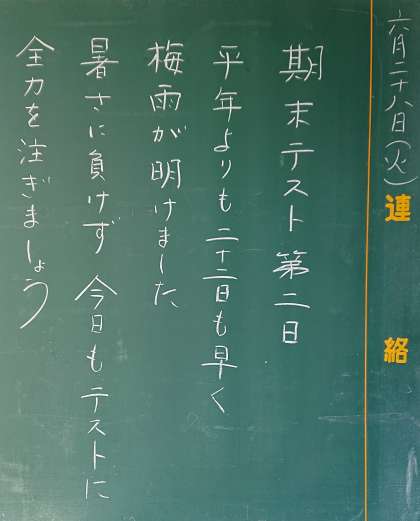 六月二十八日(火)
連絡
期末テスト第二日
平年よりも二十二日も早く
梅雨が明けました
暑さに負けず今日もテストに
全力を注ぎましょう